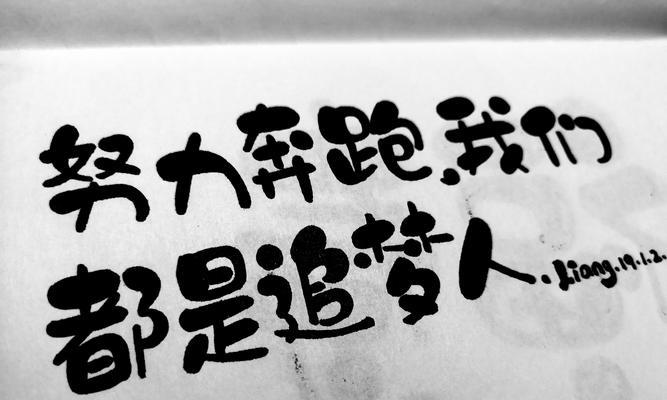 努力奔跑,我们
都是追梦人.Liang.19.1.2.